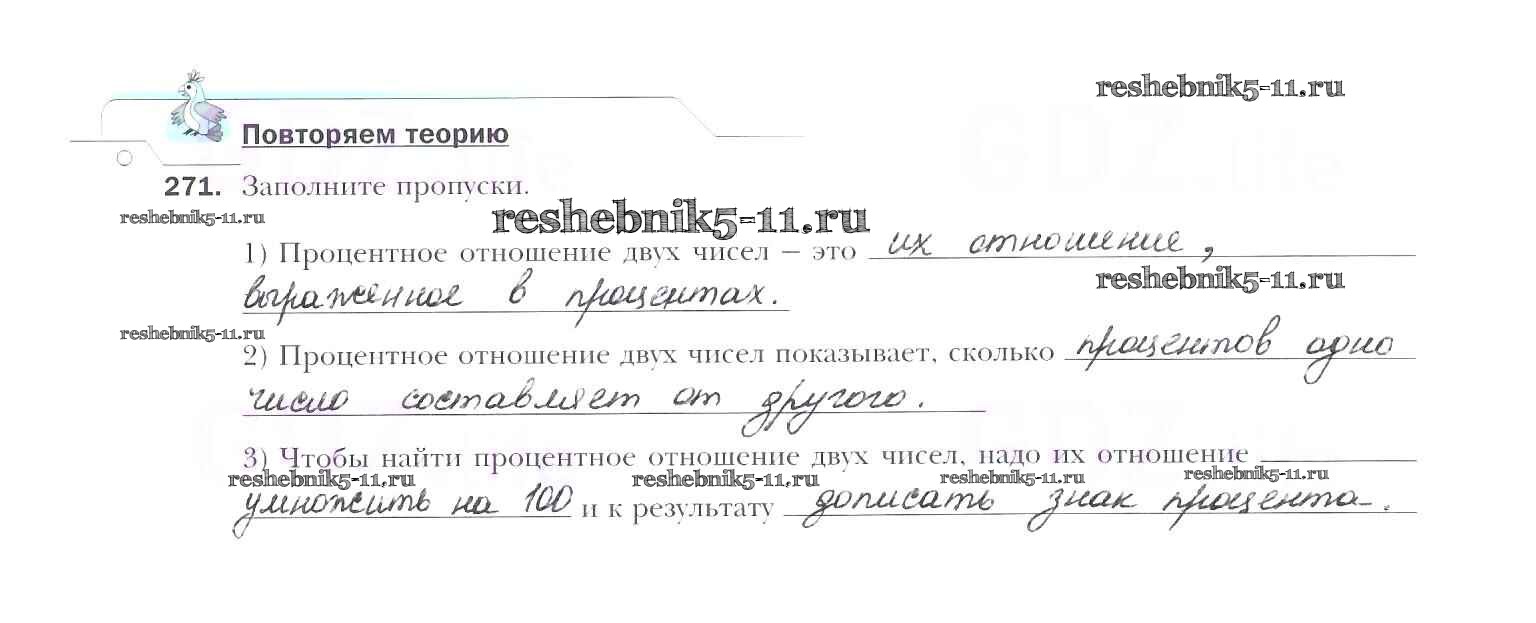 reshebnik5-11.ru
Повторяем теорию
GDZ.life
271. Заполните пропуски.
reshebnik5-11.ru
reshebnik5-11.ru
1) Процентное отношение двух чисел – это их отношение,
reshebnik5-11.ru
выраженное в процентах.
reshebnik5-11.ru
2) Процентное отношение двух чисел показывает, сколько процентов одно
число составляет от другого.
3) Чтобы найти процентное отношение двух чисел, надо их отношение
reshebnik5-11.ru reshebnik5-11.ru reshebnik5-11.ru reshebnik5-11.ru
умножить на 100 и к результату дописать знак процента.